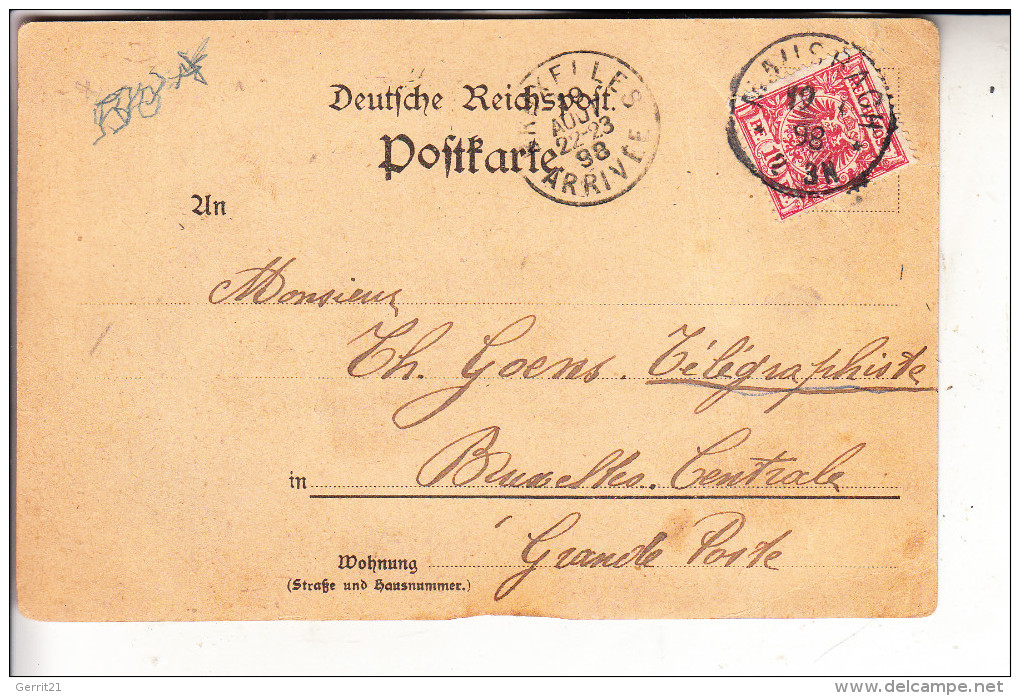 Deutsche Reichspost.
Postkarte.
BRUXELLES
9
AOUT
22-23
98
ARRIVÉE
19
98
3N
An
Monsieur
Th. Goens. Télégraphiste
in Bruxelles. Centrale
Grande Poste
Wohnung
(Straße und Hausnummer.)
Gerrit21
www.delcampe.net